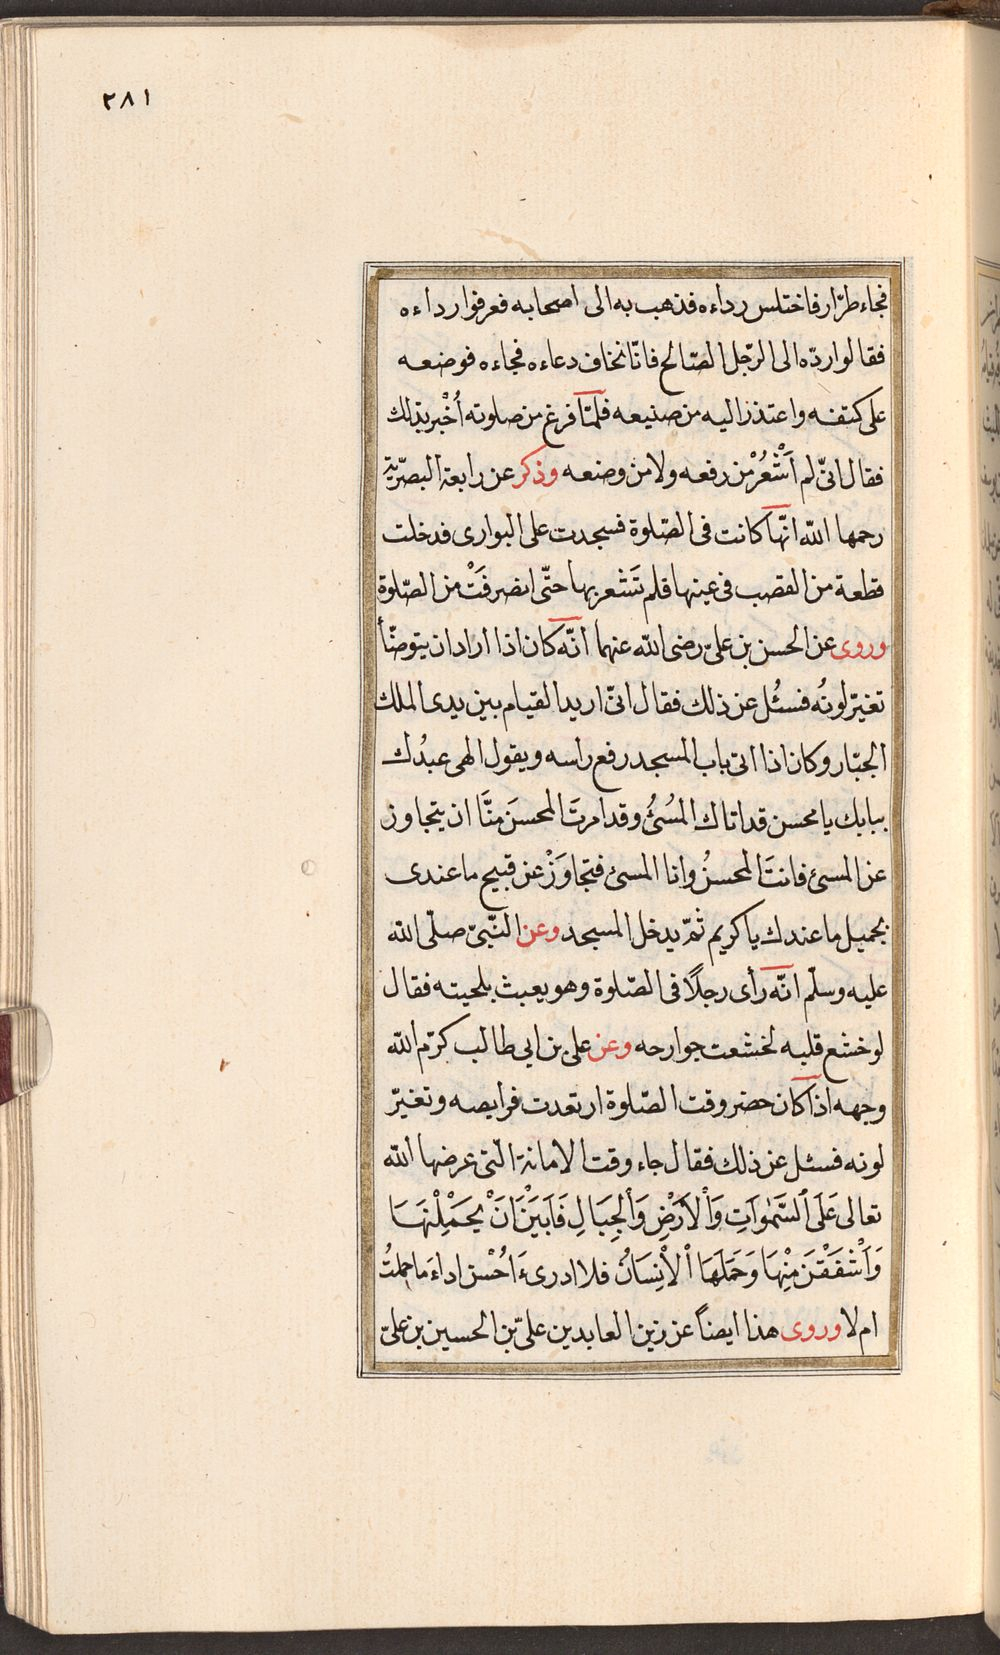 ٢٨١
فجاء طرّار فاختلس رداءه فذهب به الى اصحابه فعرفوا رداءه
فقالوا ردّه الى الرّجل الصّالح فانّا نخاف دعاءه فجاءه فوضعه
على كتفه واعتذر اليه من صنيعه فلمّا فرغ من صلوته أُخْبر بذلك
فقال انّى لم أَشْعُرْ من رفعه ولا من وضعه وذكر عن رابعة البصريّة
رحمها الله انّها كانت فى الصّلوة فسجدت على البوارى فدخلت
قطعة من القصب فى عينها فلم تَشعر بها حتّى انصرفَتْ من الصّلوة
وروى عن الحسن بن علىّ رضى الله عنهما انّه كان اذا اراد ان يتوضّأ
تغيّر لونُه فسئُل عن ذلك فقال انّى اريد القيام بين يدى الملك
الجبّار وكان اذا اتى باب المسجد رفع راسه ويقول الهى عبدُك
ببابك يا محسن قد اتاك المُسئُ وقد امرتَ المحسنَ منَّا ان يتجاوز
عن المسئ فانتَ المحسنُ وانا المسئ فتجاوَزْ عن قبيح ما عندى
بجميل ما عندك يا كريم ثمّ يدخل المسجد وعن النّبىّ صلّى الله
عليه وسلّم انّه رأى رجلًا فى الصّلوة وهو يعبث بلحيته فقال
لو خشع قلبه لخشعت جوارحه وعن على بن ابى طالب كرّم الله
وجهه اذا كان حضر وقت الصّلوة ارتعدت فرايصه وتغيّر
لونه فسئل عن ذلك فقال جاء وقت الامانة الّتى عرضها الله
تعالى عَلَى ٱلسَّمٰوَاتِ وَٱلْاَرْضِ وَٱلْجِبَالِ فَاَبَيْنَ اَنْ يَحْمِلْنَهَا
وَاَشْفَقْنَ مِنْهَا وَحَمَلَهَا ٱلْاِنْسَانُ فلا ادرى ءَاُحْسن اداءَ ما حملتُ
ام لا وروى هذا ايضاً عن زين العابدين علىّ بن الحسين بن علىّ